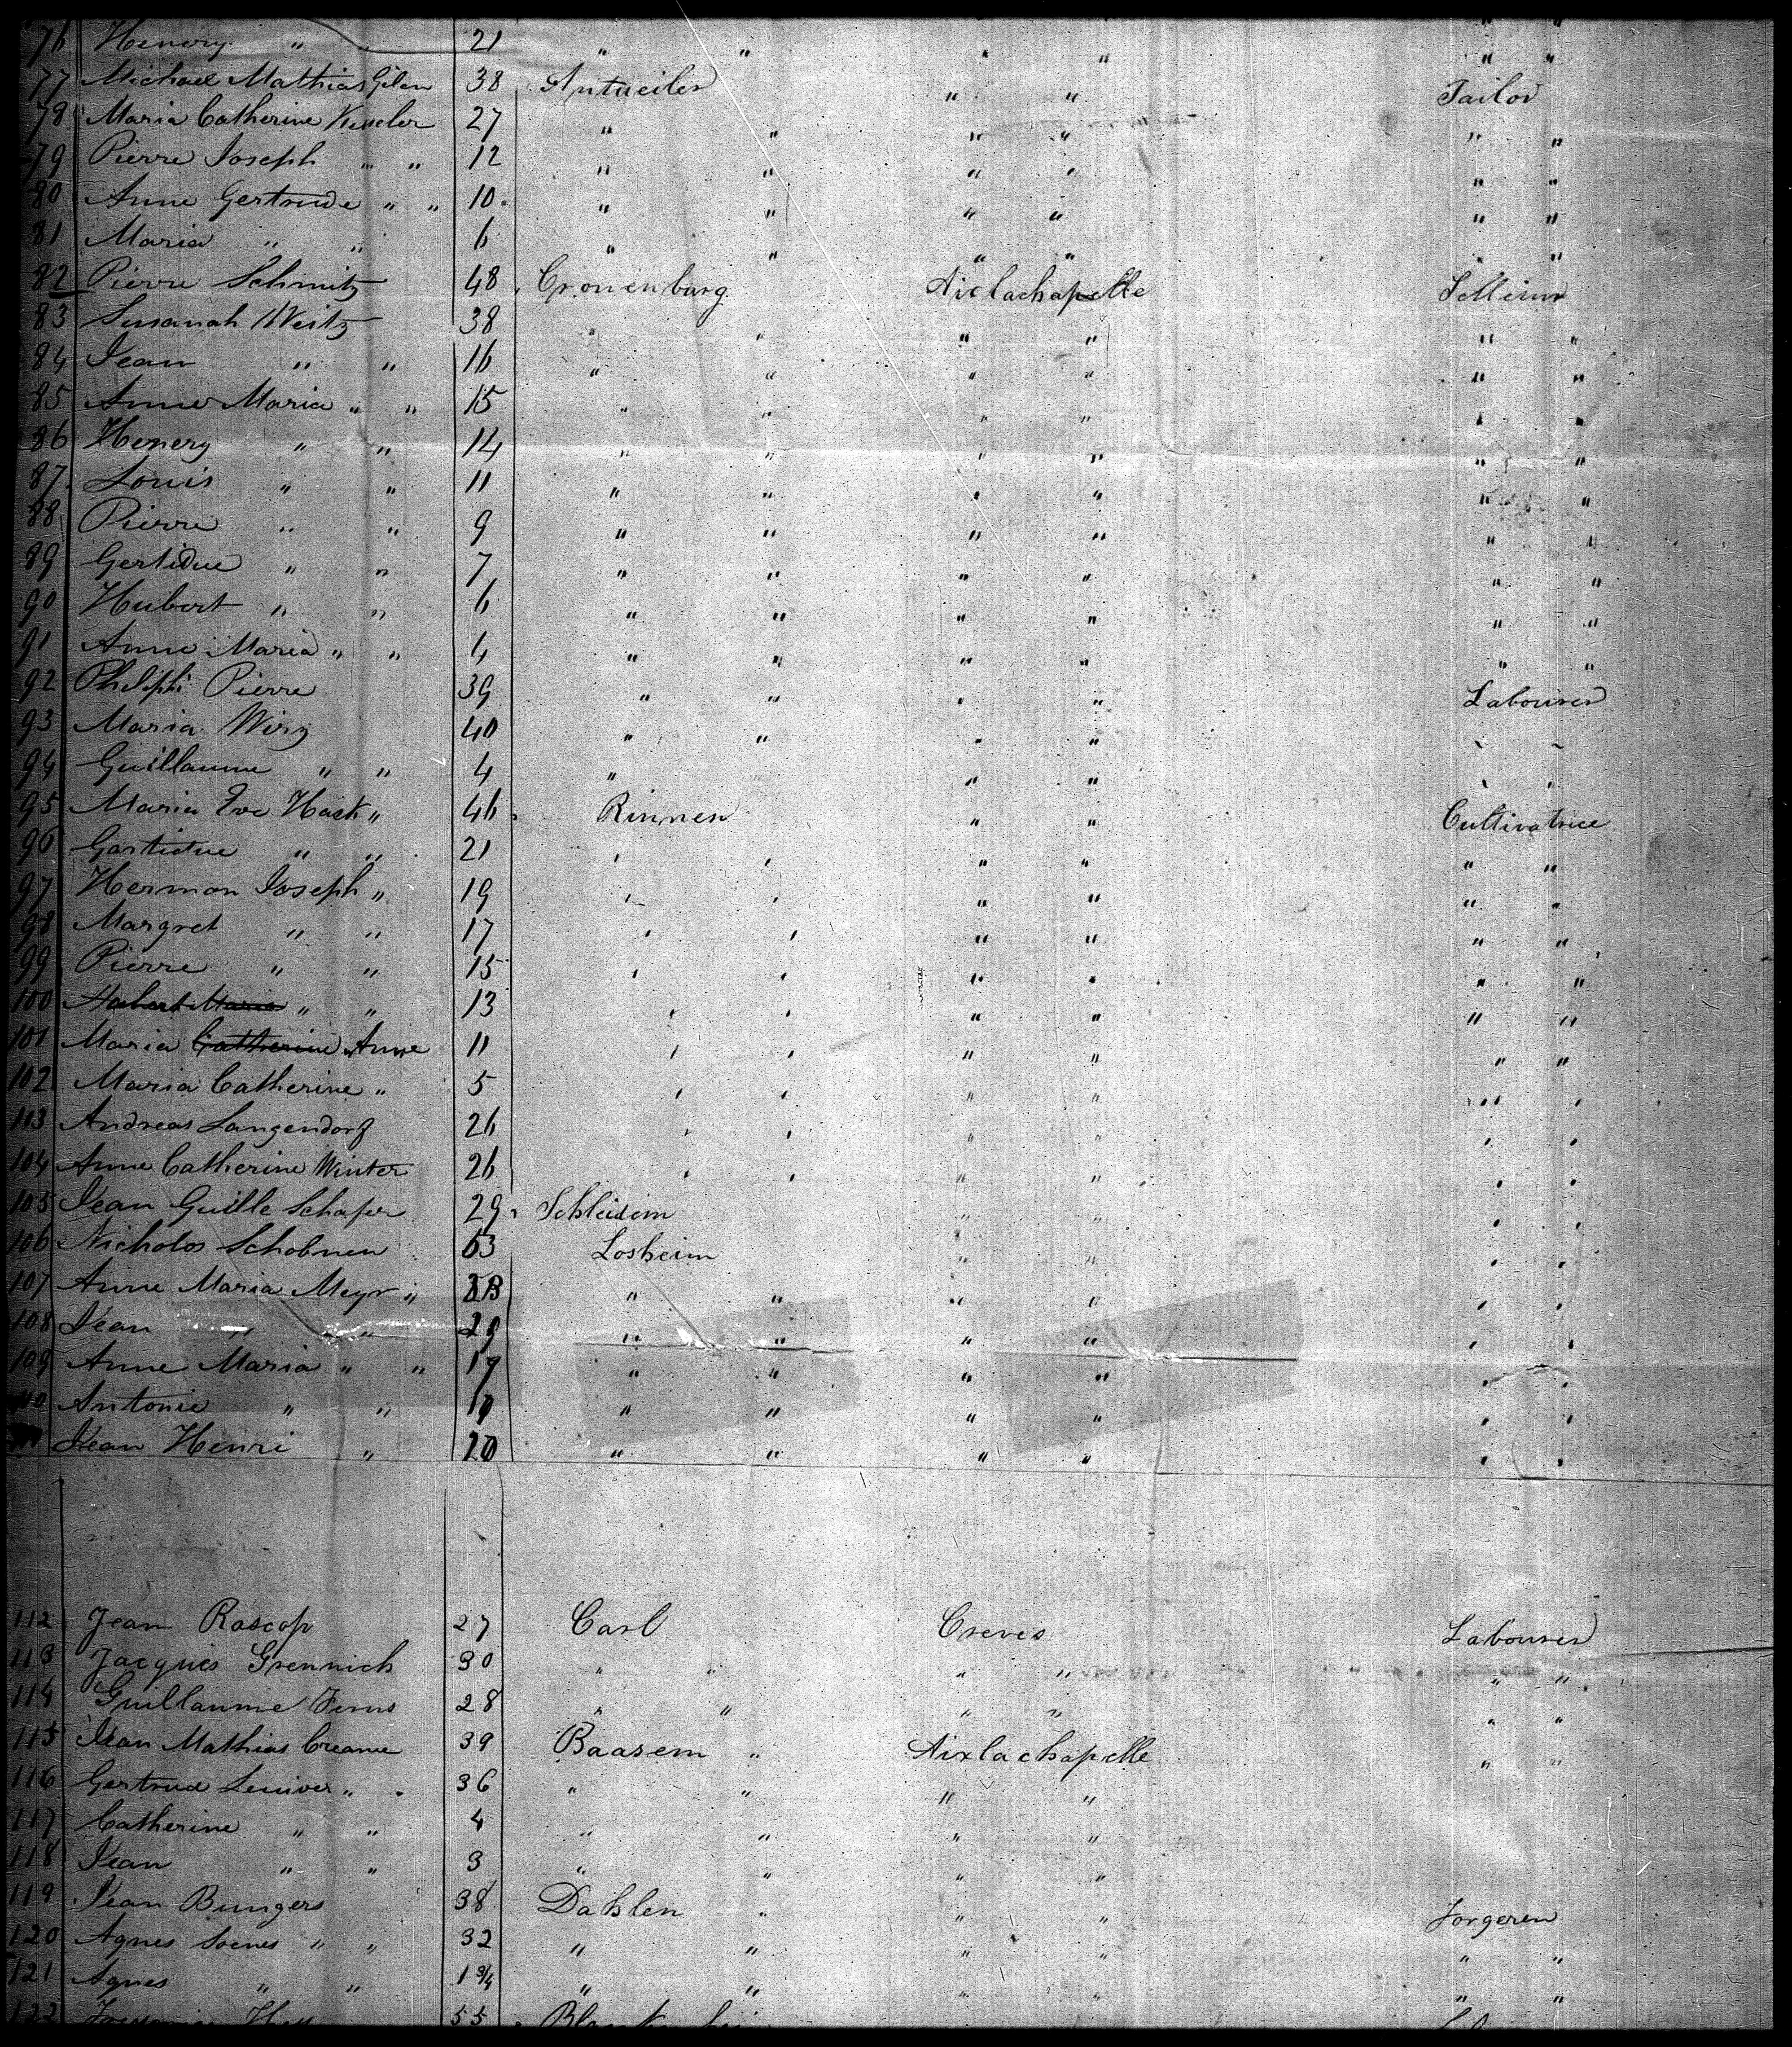 76 Henery " " 21 " " " " " "
77 Michael Mathias Gilen 38 Antweiler " " Tailor
78 Maria Catherine Kessler 27 " " " " " "
79 Pierre Joseph " " 12 " " " " " "
80 Anne Gertrude " " 10 " " " " " "
81 Maria " " 6 " " " " " "
82 Pierre Schmitz 48 Cronenburg Aixlachapelle
83 Susanah Weitz 38 " " " " " "
84 Jean " " 16 " " " " " "
85 Anne Maria " " 15 " " " " " "
86 Henery " " 14 " " " " " "
87 Louis " " 11 " " " " " "
88 Pierre " " 9 " " " " " "
89 Gertidue " " 7 " " " " " "
90 Hubert " " 6 " " " " " "
91 Anne Maria " " 4 " " " " " "
92 Philiph Pierre 39 " " " " Labourer
93 Maria Wirz 40 " " " " " "
94 Guillaume " " 4 " " " " "
95 Maria Eve Hack " 46 Rinnen " " Cultivatrice
96 Gertidue " " 21 " " " " " "
97 Herman Joseph " 19 " " " " " "
98 Margret " " 17 " " " " " "
99 Pierre " " 15 " " " " " "
100 Hubert Maria " " 13 " " " " " "
101 Maria Catherine Anne 11 " " " " " "
102 Maria Catherine " 5 " " " " " "
113 Andreas Langendorf 26 " " " " " "
104 Anne Catherine Winter 26 " " " " " "
105 Jean Guille Schafer 29 Schleidem " " " "
106 Nicholos Schobnen 63 Losheim " " " "
107 Anne Maria Meyr " " " " " " "
108 Jean " " 29 " " " " " "
109 Anne Maria " " 19 " " " " " "
110 Antonie " " " " " " " "
Jean Henri " 20 " " " " " "
112 Jean Rascop 27 Carl Creves Labourer
113 Jacques Grennich 30 " " " " " "
114 Guillaume Ferns 28 " " " " " "
115 Jean Mathias Creame 39 Baasem " Aixlachapelle " "
116 Gertrud Leuiver " " 36 " " " "
117 Catherine " " 4 " " " "
118 Jean " " 3 " " " "
119 Jean Bungers 38 Dahlen " " " Forgeren
120 Agnes Soenes " " 32 " " " " " "
121 Agnes " " 1 3/4 " " " " " "
122 55